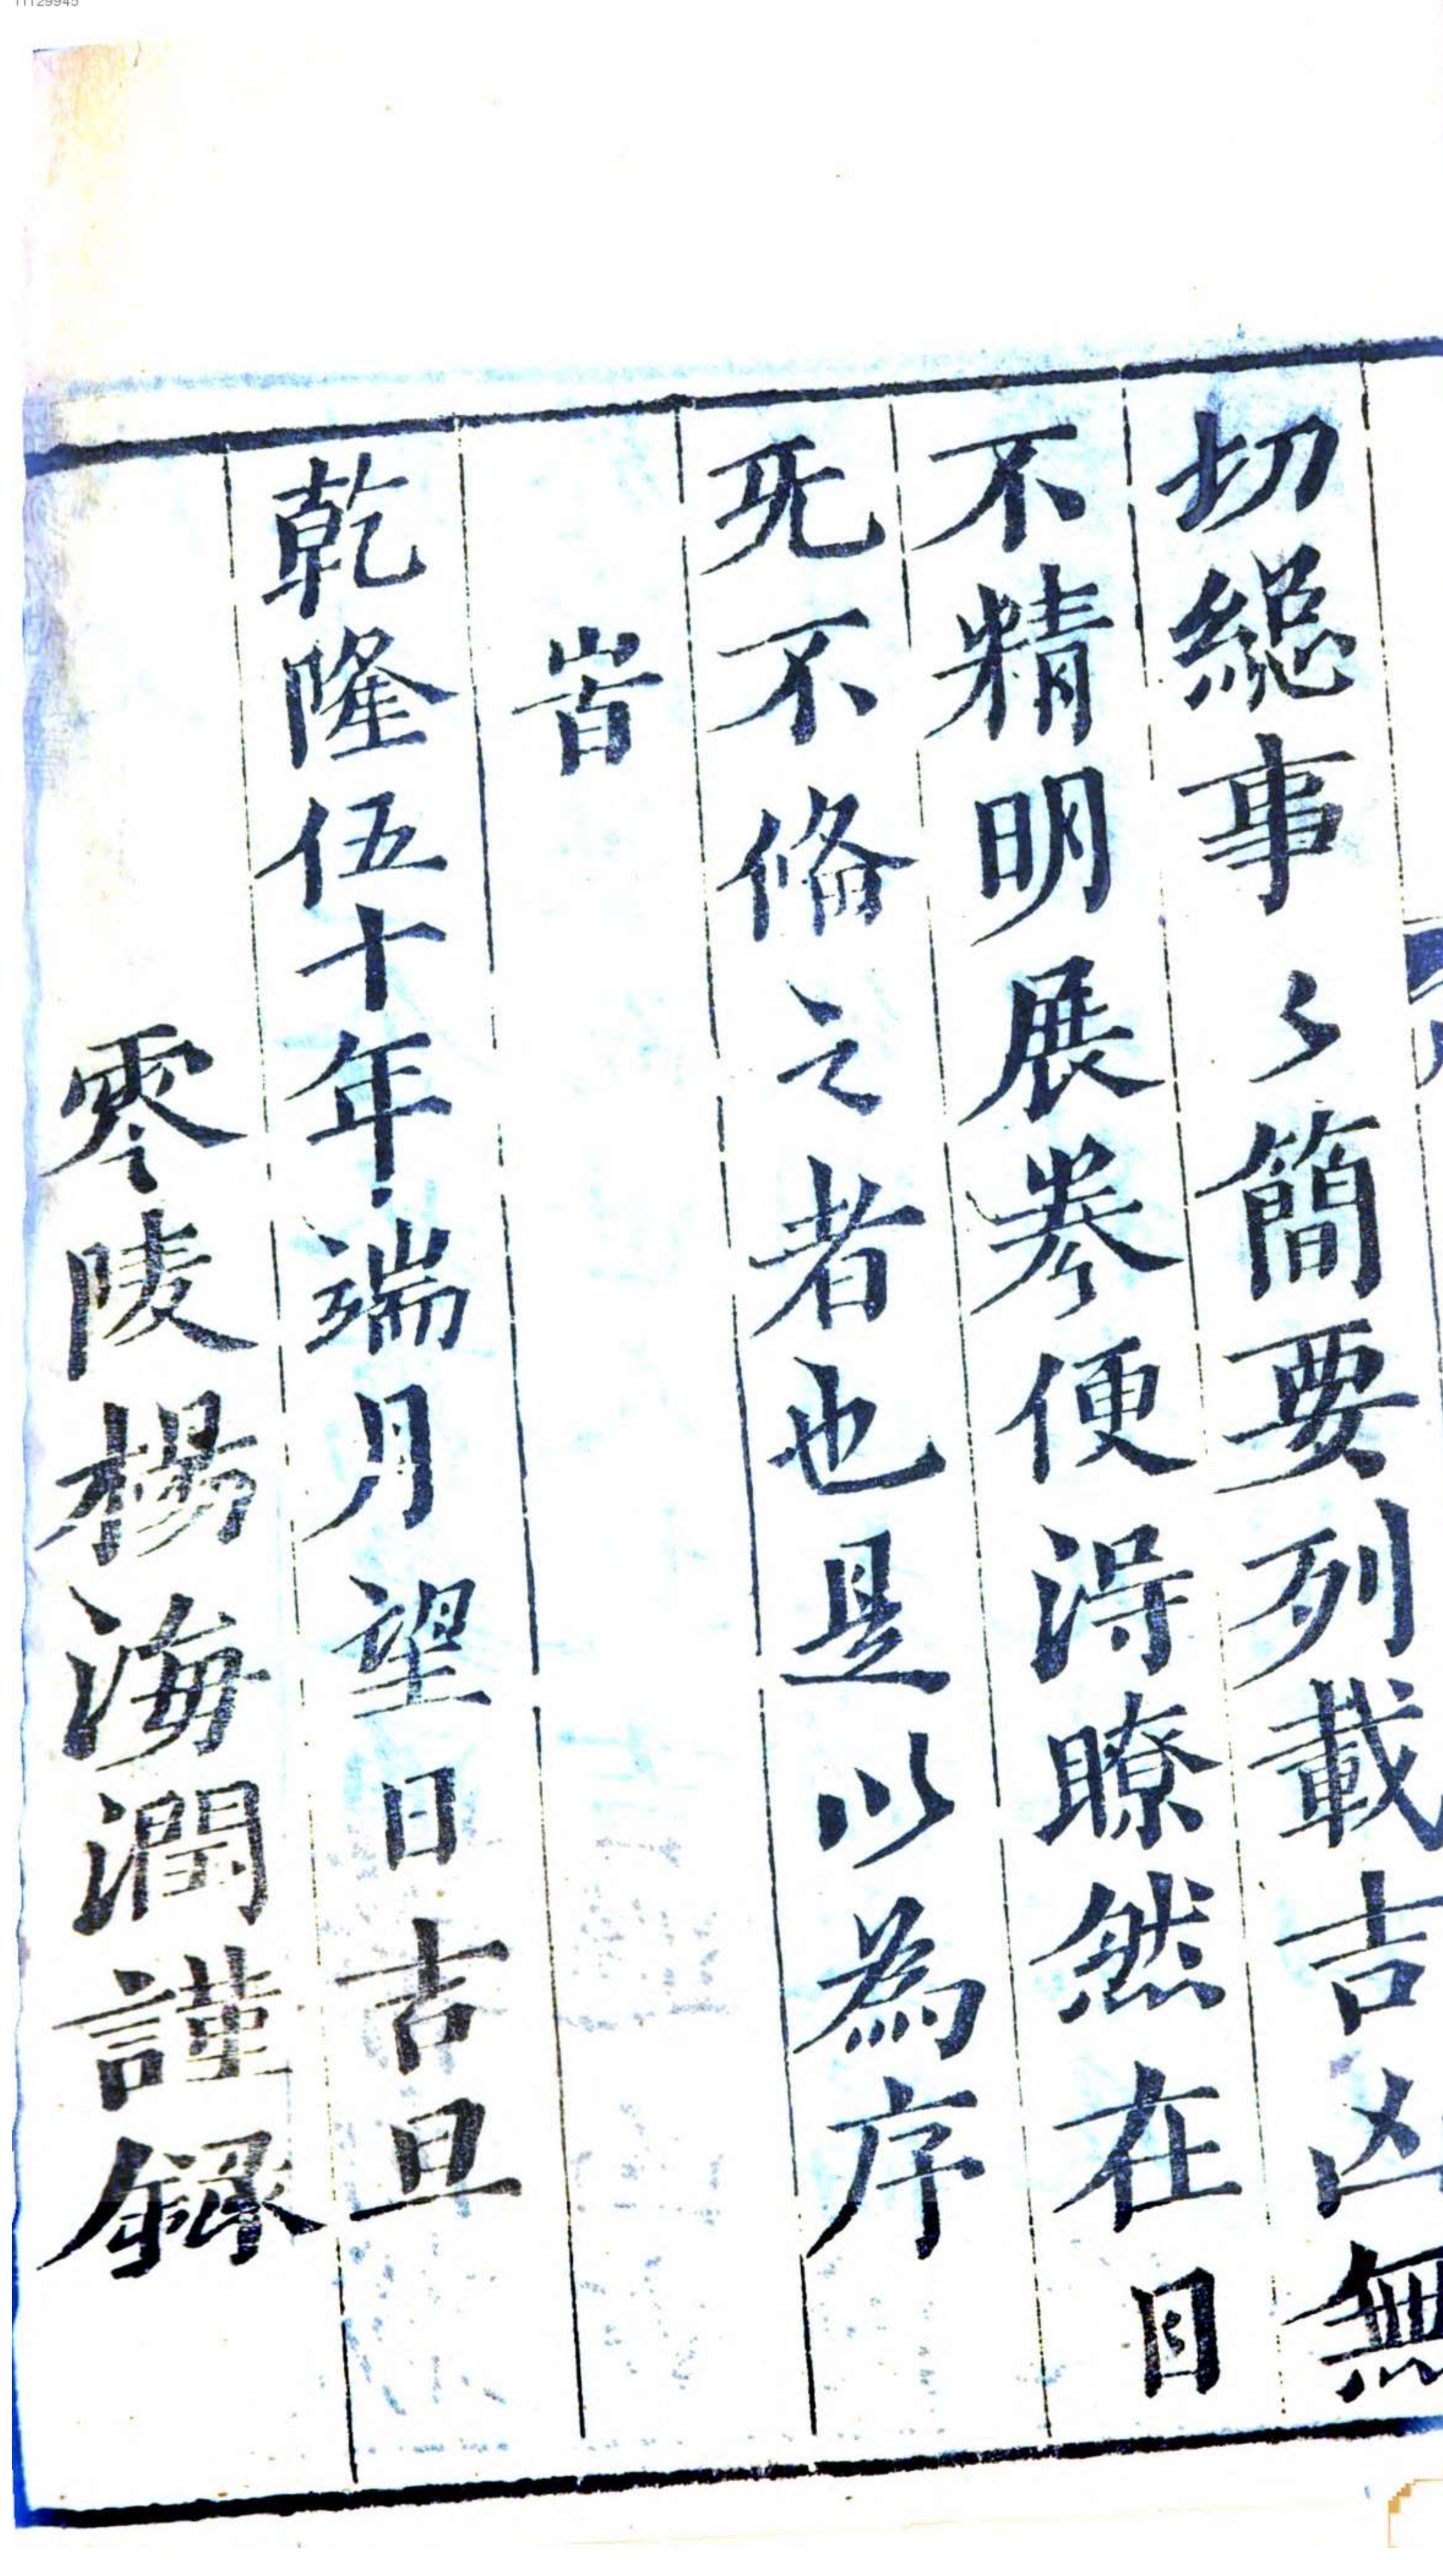 切緫事〻簡要列載吉凶無
不精明展卷便淂瞭然在目
旡不俻之者也是以為序
旹
乾隆伍十年端月望日吉旦
零陵楊海潤謹録
11129945